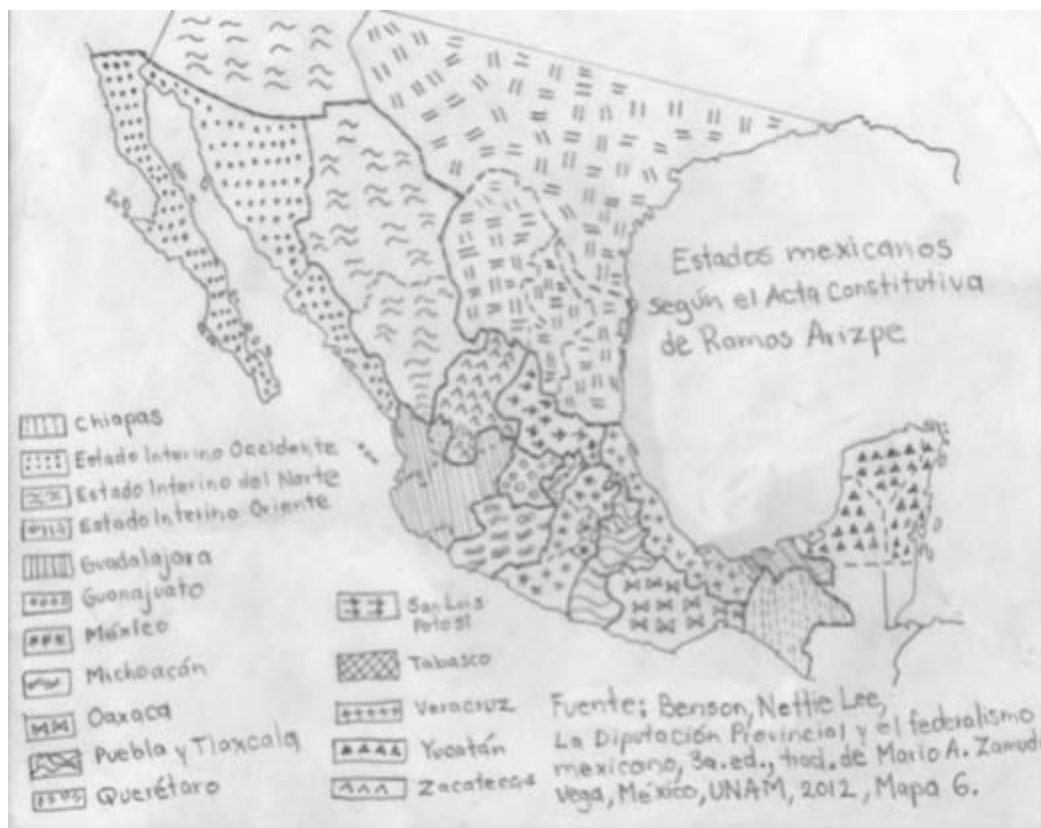 Estados mexicanos
según el Acta Constitutiva
de Ramos Arizpe
Chiapas
Estado Interino Occidente
Estado Interino del Norte
Estado Interino Oriente
Guadalajara
Guanajuato
México
Michoacán
Oaxaca
Puebla y Tlaxcala
Querétaro
San Luis
Potosí
Tabasco
Veracruz
Yucatán
Zacatecas
Fuente: Benson, Nettie Lee,
La Diputación Provincial y el federalismo
mexicano, 3a.ed., trad. de Mario A. Zamud
Vega, México, UNAM, 2012, Mapa 6.